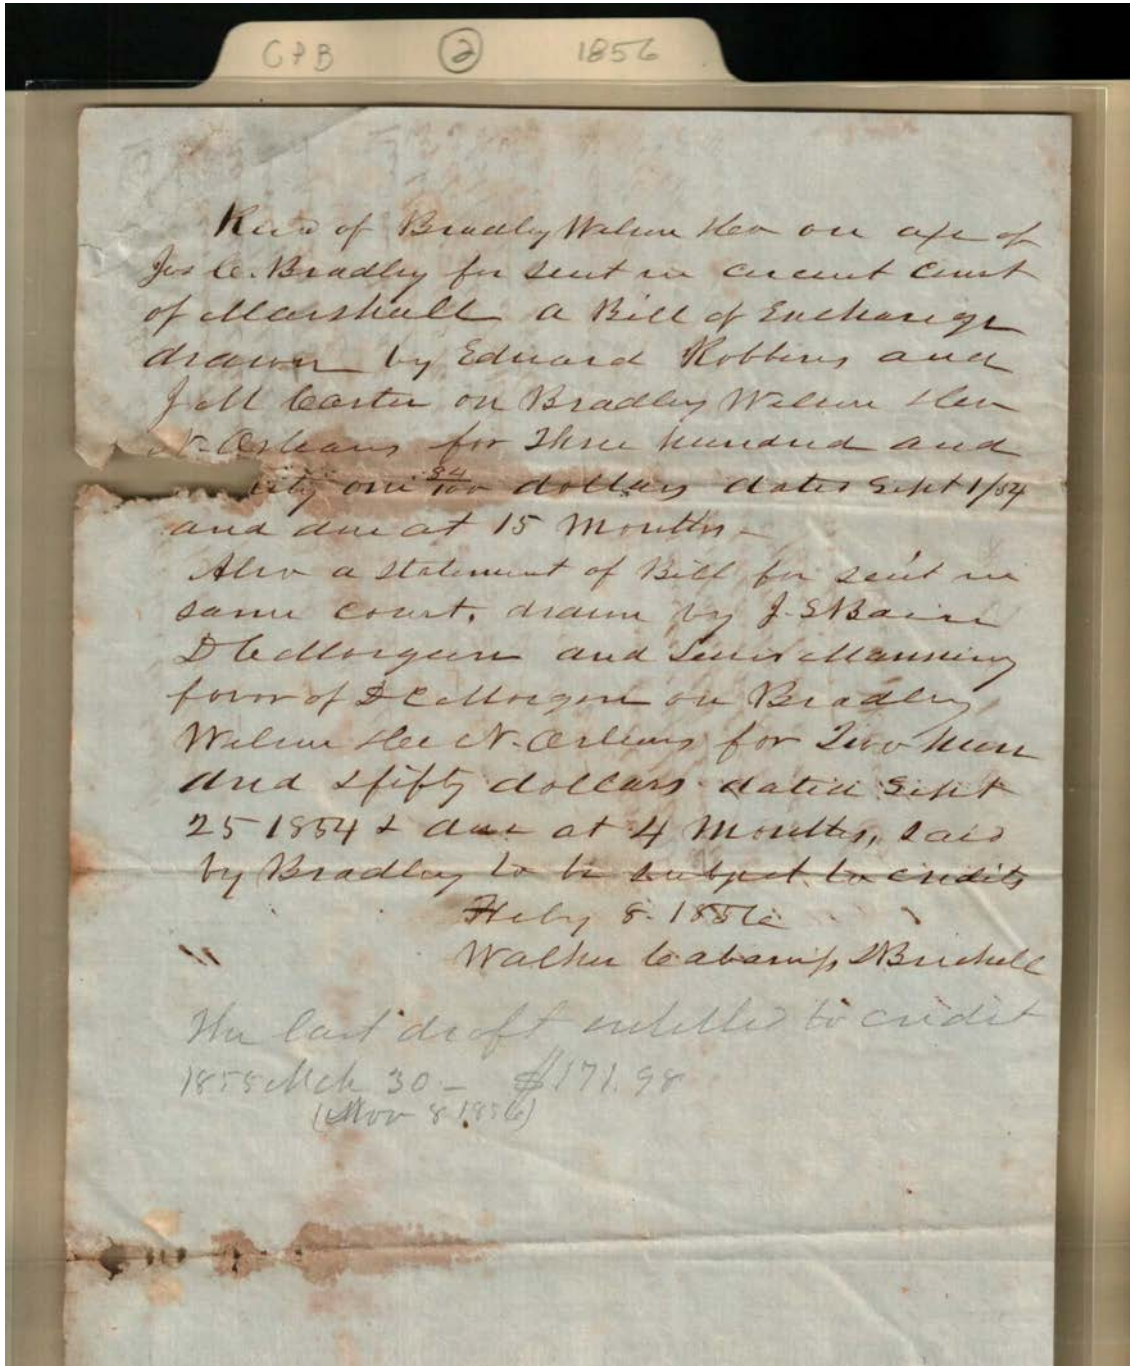 CPB 2 1856
Recd of Bradley Wilson & Co on a/c of
Jos C. Bradley for suit in circuit court
of Marshall a Bill of Exchange
drawn by Edward Robbins and
J M Carter on Bradley Wilson & Co
N. Orleans for Three hundred and
one 84/100 dollars dated Sept 1/54
and due at 15 Months -
Also a statement of Bill for suit in
same court, drawn by J. S
D C Morgan and Lewis Manning
favor of D C Morgan on Bradley
Wilson & Co N. Orleans for Two hun
dred & fifty dollars dated Sept
25 1854 & due at 4 Months, said
by Bradley to be subject to credits
Feby 8. 1856
Walker Cabaniss & Brickell
The last draft entitled to credit
185 Mch 30 - $171.98
(Nov 8 1856)